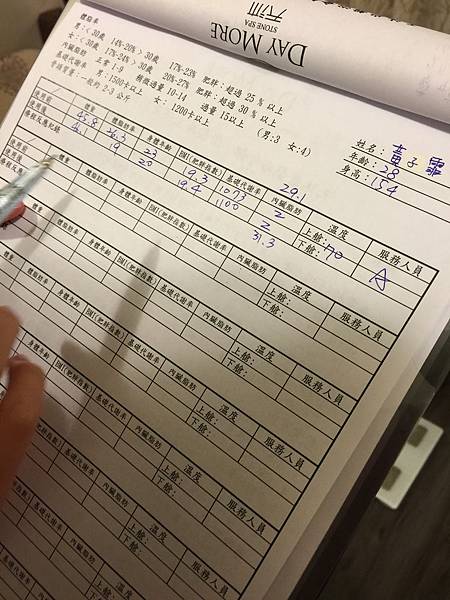 DAY MORE
STONE SPA
體脂率
男：< 30歲 14%-20% > 30歲 17%-23% 肥胖：超過 25 % 以上
女：< 30歲 17%-24% > 30歲 20%-27% 肥胖：超過 30 % 以上
內臟脂肪 正常 1-9 稍微過量 10-14 過量 15以上
基礎代謝率 男：1500卡以上 女：1200卡以上
骨頭重量：一般約 2-3 公斤 (男:3 女:4)
姓名：
年齡：28
身高：154
體重 體脂肪率 身體年齡 BMI(肥胖指數) 基礎代謝率 內臟脂肪 溫度 服務人員
使用前 45.8 26.3 23 19.3 1073 2 上艙：70
29.1
使用後 46.1 19 23 19.4 1100 2 下艙：
31.3
A
體重 體脂肪率 身體年齡 BMI(肥胖指數) 基礎代謝率 內臟脂肪 溫度 服務人員
上艙：
下艙：
體重 體脂肪率 身體年齡 BMI(肥胖指數) 基礎代謝率 內臟脂肪 溫度 服務人員
上艙：
下艙：
體重 體脂肪率 身體年齡 BMI(肥胖指數) 基礎代謝率 內臟脂肪 溫度 服務人員
上艙：
下艙：
身體年齡 BMI(肥胖指數) 基礎代謝率 內臟脂肪 溫度 服務人員
上艙：
下艙：
基礎代謝率 內臟脂肪 溫度 服務人員
上艙：
下艙：
內臟脂肪 溫度 服務人員
上艙：
下艙：